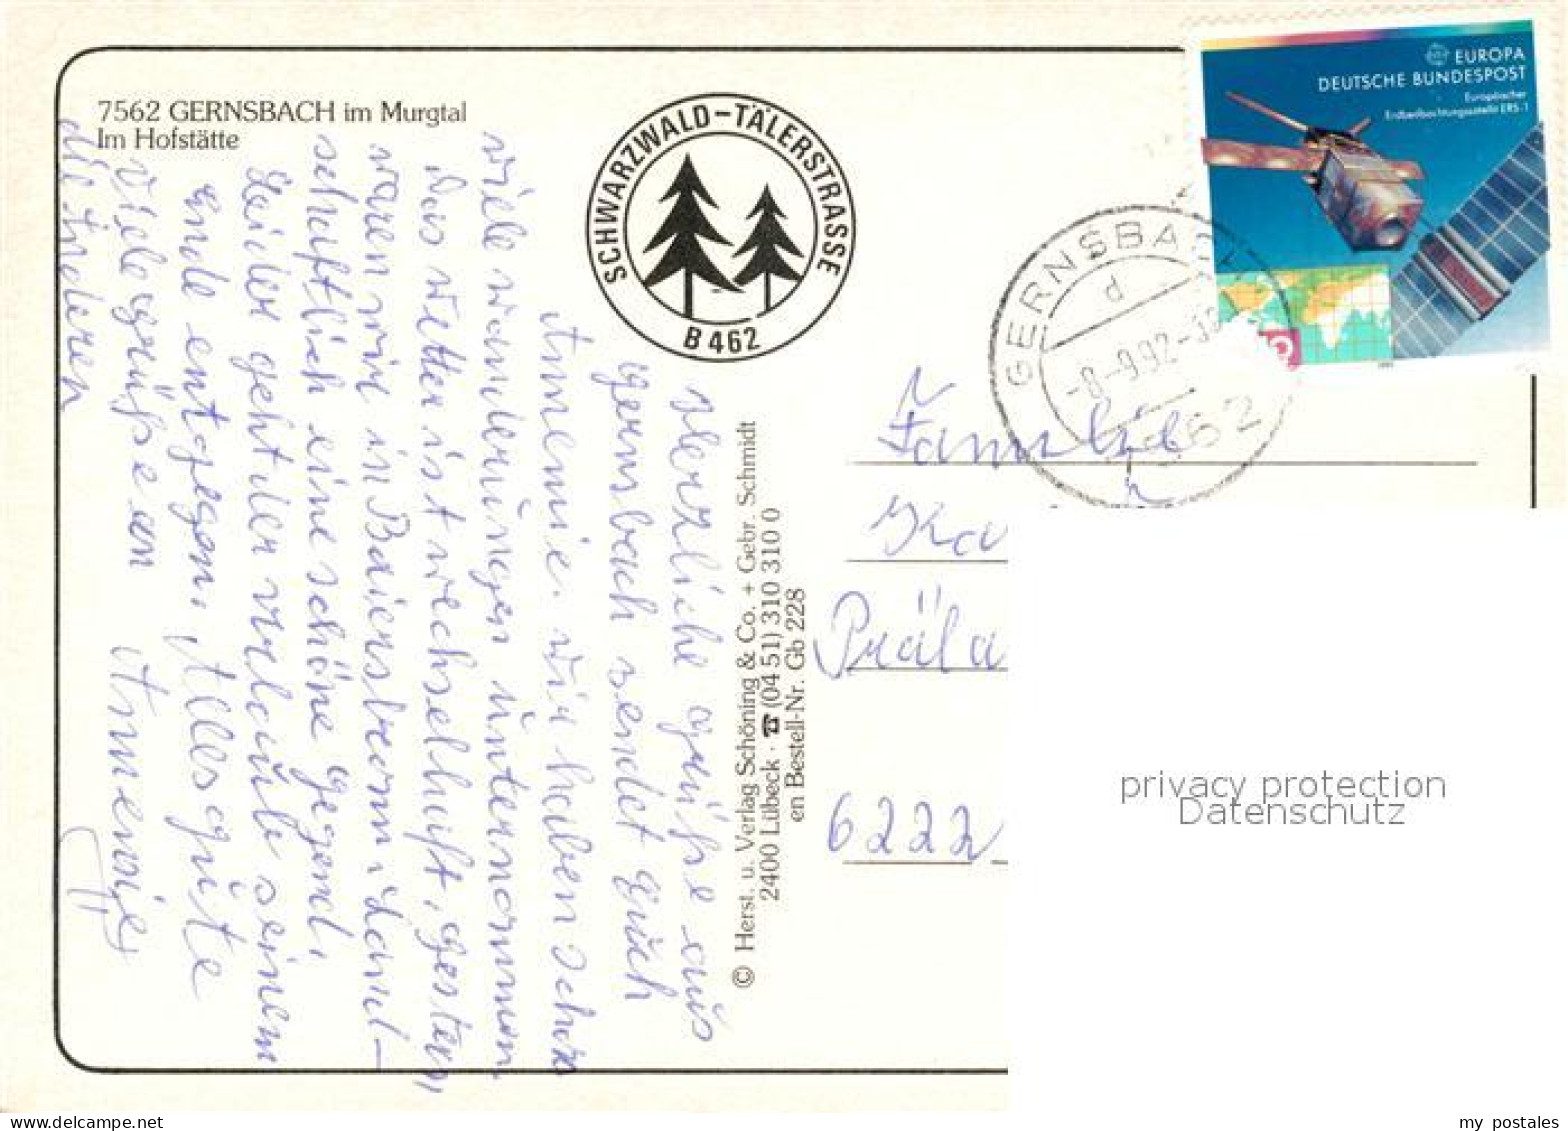 7562 GERNSBACH im Murgtal
Im Hofstätte
SCHWARZWALD-TÄLERSTRASSE
B 462
EUROPA
DEUTSCHE BUNDESPOST
Europäischer
Erdbeobachtungssatellit ERS-1
GERNSBACH
d
-8.-9.92-
7562
Herzliche grüße aus
gernsbach sendet Euch
Annemie. wir haben schon
viele wanderungen unternommen
das wetter ist wechselhaft, gestern
waren wir in Baiersbronn, Land-
schaftlich eine schöne gegend,
Leider geht der urlaub seinem
Ende entgegen, Alles gute
Viele grüße an Annemie
die Anderen
© Herst. u. Verlag Schöning & Co. + Gebr. Schmidt
2400 Lübeck · ☎ (04 51) 310 310 0
en Bestell-Nr. Gb 228
Familie
Präla
6222
privacy protection
Datenschutz
my postales